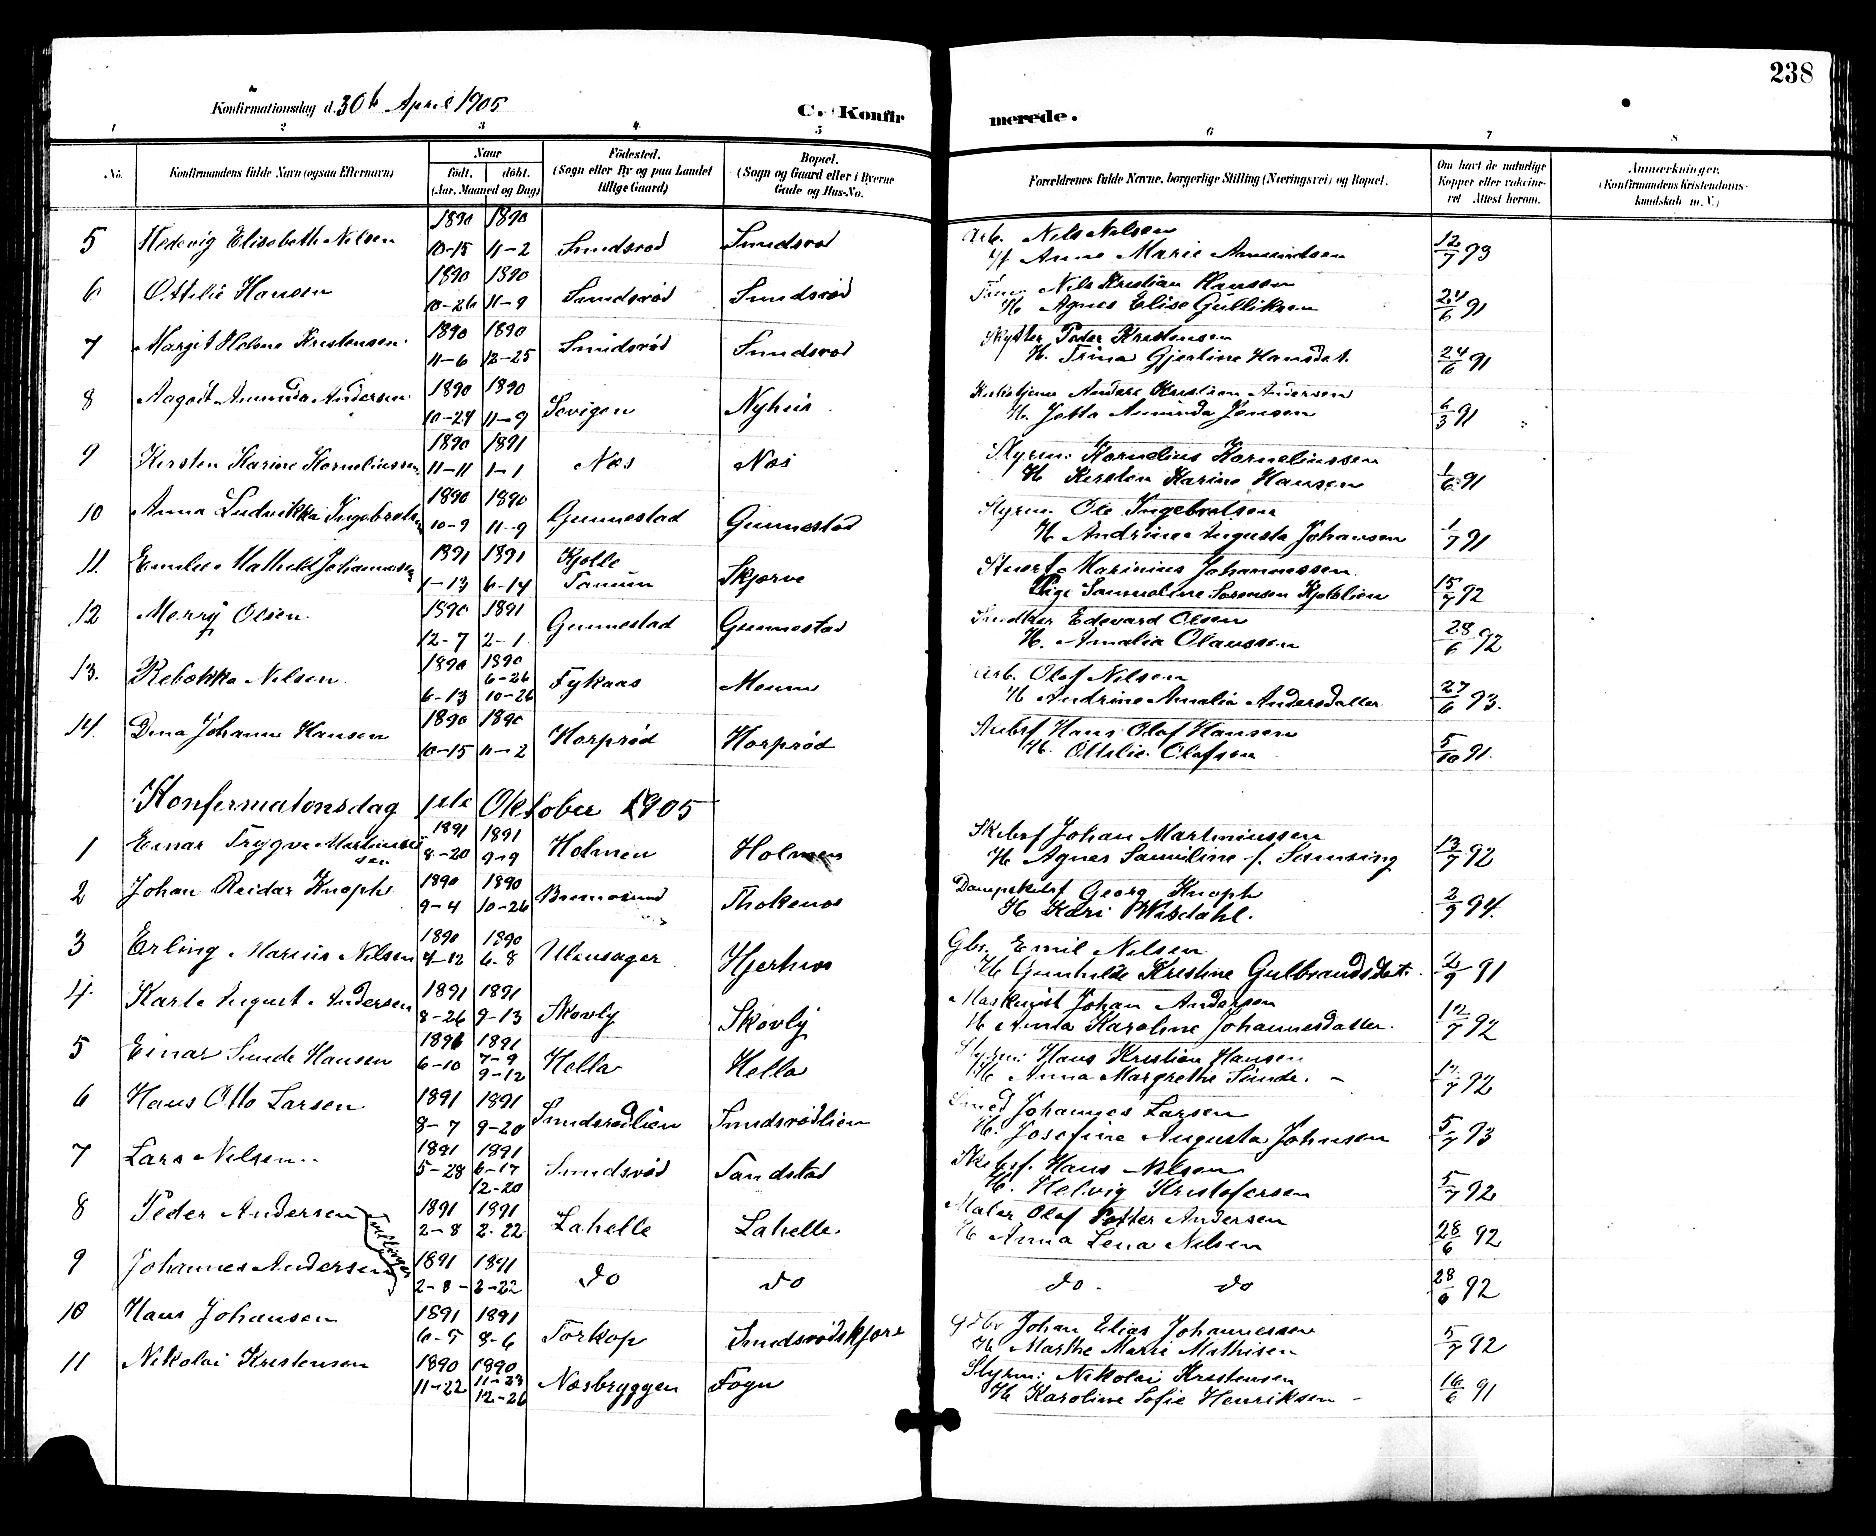 238
Konfirmationsdag d. 30te April 1905
C. Konfirmerede.
1 2 3 4 5 6 7 8
No. Konfirmandens fulde Navn (ogsaa Efternavn) Naar født. døbt. (Aar, Maaned og Dag) Födested. (Sogn eller By og paa Landet tillige Gaard) Bopæl. (Sogn og Gaard eller i Byerne Gade og Hus-No. Forældrenes fulde Navne, borgerlige Stilling (Næringsvei) og Bopæl. Om havt de naturlige Kopper eller vakcineret Attest herom. Anmærkninger. (Konfirmandens Kristendomskundskab m. V.)
5 Hedevig Elisabeth Nilsen 1890 10-15 1890 11-2 Smidsrød Smidsrød Arb. Nils Nilsen
H Anne Marie Amundsen 12/7 93
6 Ottilie Hansen 1890 10-26 1890 11-9 Smidsrød Smidsrød Nils Kristian Hansen
H. Agnes Elise Gulliksen 24/6 91
7 Margit Helene Kristensen 1890 11-6 1890 12-25 Smidsrød Smidsrød Skytter Peder Kristensen
H. Trina Gjertine Hansdat. 24/6 91
8 Aagodt Amunda Andersen 1890 10-24 1890 11-9 Sevigen Nyhus Anders Kristian Andersen
H. Jotta Aminda Jensen 6/3 91
9 Kirsten Karine Korneliussen 1890 11-11 1891 1-1 Næs Næs Styrm. Kornelius Korneliussen
H Kirsten Karine Hansen 1/6 91
10 Anna Ludvikka Ingebretsen 1890 10-9 1890 11-9 Gunnestad Gunnestad Styrm. Ole Ingebretsen
H Andrine Augusta Johansen 1/7 91
11. Emilie Mathilde Johannesen 1891 1-13 1891 6-14 Kjølle Tanum Skjerve Marinius Johannessen
Pige Samueline Sørensen Kjølslien 15/7 92
12 Merry Olsen 1890 12-7 1891 2-1 Gunnestad Gunnestad Edevard Olsen
H. Amalia Olaussen 28/6 92
13. Rebekka Nilsen 1890 6-13 1890 6-26 10-26 Fykaas Moum Arb. Olaf Nilsen
H Andrine Amalia Andersdatter 27/6 93.
14. Dina Johanne Hansen 1890 10-15 1890 11-2 Horprød Horprød Hans Olaf Hansen
H. Ottilie Olafsen 5/10 91.
Konfermatonsdag 1ste Oktober 1905
1 Einar Trygve Martiniussen 1891 8-20 1891 9-9 Holmen Holmen Skibsf Johan Martiniussen
H Agnes Samiline f. Samsing 13/7 92
2 Johan Reidar Knoph 1890 9-4 1890 10-26 Thokenes Dampskibsf Georg Knoph
H Kari Wisdahl. 2/9 94.
3 Erling Marius Nilsen 1890 4-12 1890 6-8 Ulensager Hjerhus Gbr. Emil Nilsen
H Gunhilde Kristine Gulbrandsdat. 2/9 91
4. Karl August Andersen 1891 8-26 1891 9-13 Skovly Skovly Maskinist Johan Andersen
H Anna Karoline Johannesdatter. 12/7 92
5 Einar Sunde Hansen 1891 6-10 1891 7-9 9-12 Hella Hella Styrm. Hans Kristian Hansen
H Anna Margrethe Sunde. 92
6 Hans Otto Larsen 1891 8-7 1891 9-20 Smidsrødlien Smidsrødlien Smed Johannes Larsen
H. Josefine Augusta Johnsen 5/7 93
7 Lars Nilsen 1891 5-28 1891 6-17 12-20 Smidsrød Sandstad Skibsf. Hans Nilsen
H. Helvig Kristofersen 5/7 92
8 Peder Andersen Tvillinger 1891 2-8 1891 2-22 Lahelle Lahelle. Maler Olaf Petter Andersen
H Anna Lena Nilsen 28/6 92
9 Johannes Andersen 1891 2-8 1891 2-22 do do do do 28/6 92
10 Hans Johansen 1891 6-5 1891 8-6 Torkop Smidsrødskjære Johan Elias Johannessen
H Marthe Marie Mathisen 5/7 92
11 Nikolai Kristensen 1890 11-22 1890 11-23 12-26 Næsbryggen Føyn Styrm. Nikolai Kristensen
H Karoline Sofie Henriksen 16/6 91